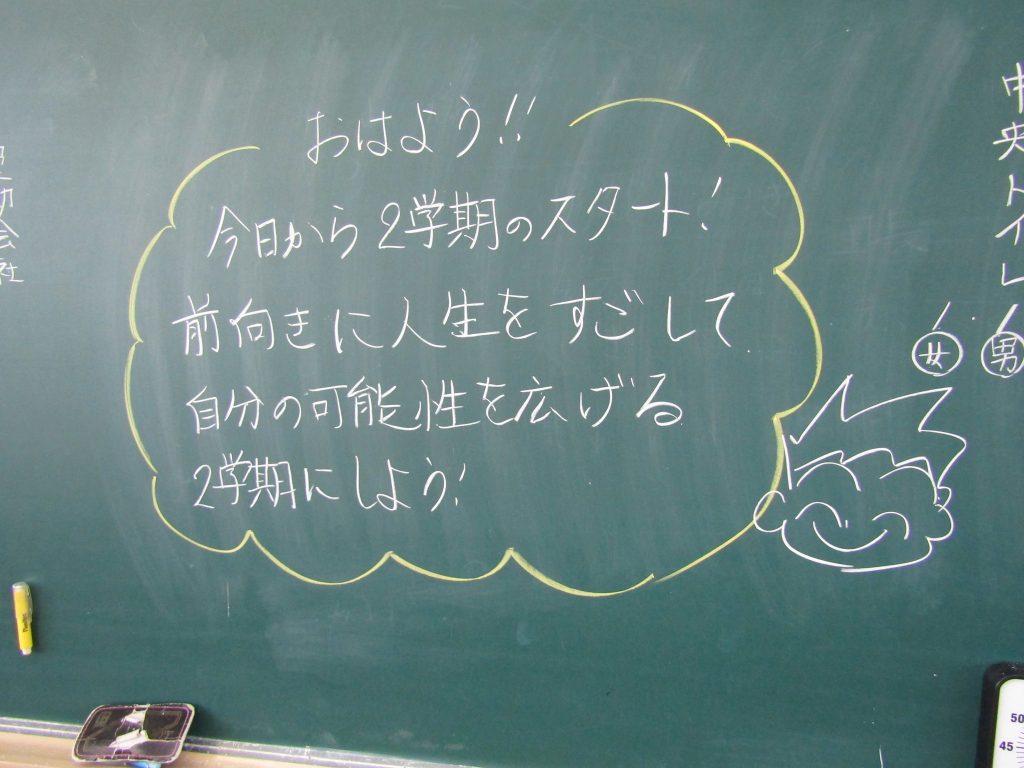 おはよう!!
今日から2学期のスタート!
前向きに人生をすごして
自分の可能性を広げる
2学期にしよう!
中央トイレ
女
男
会社
50
45